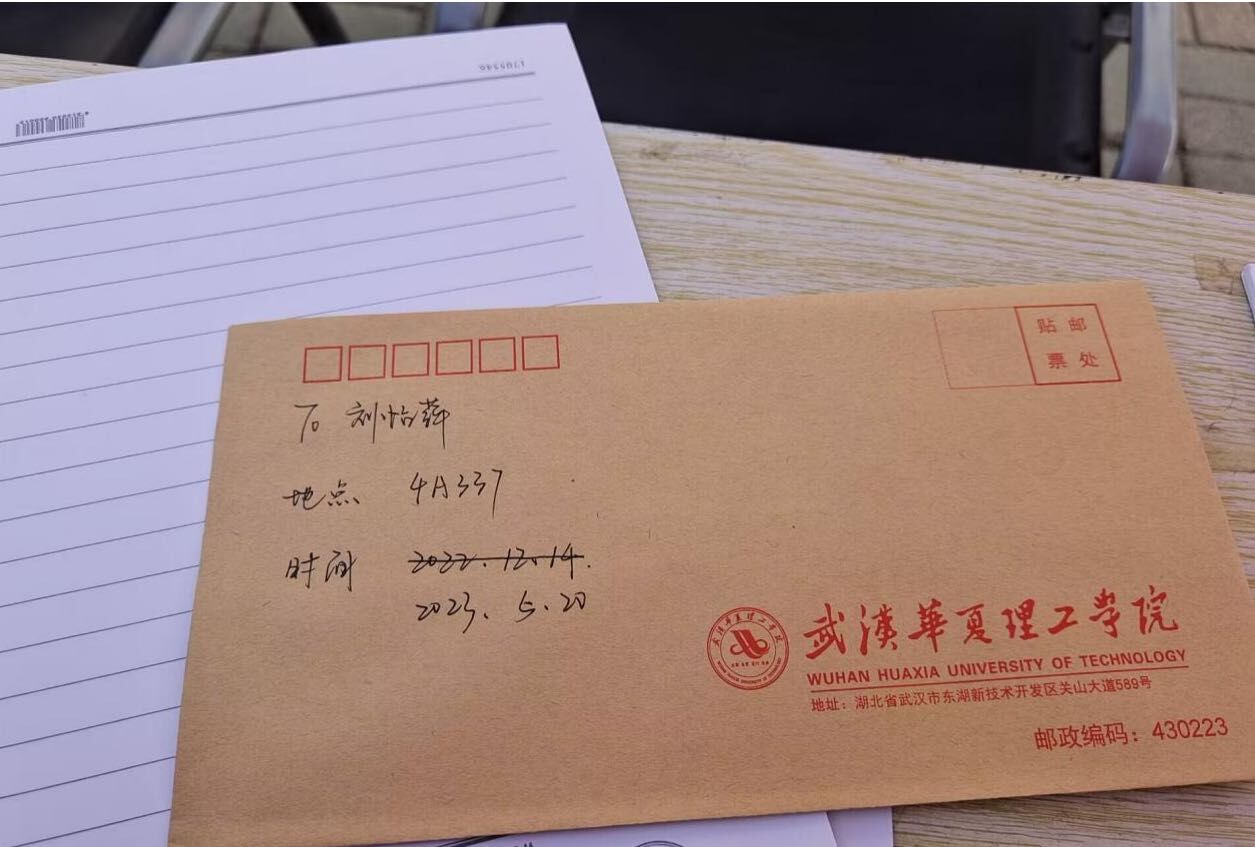 1705546
贴 邮
票 处
To 刘怡萍
地点 4A337
时间 2022.12.14.
2023. 5.20
武漢華夏理工学院
WUHAN HUAXIA UNIVERSITY OF TECHNOLOGY
地址：湖北省武汉市东湖新技术开发区关山大道589号
邮政编码：430223